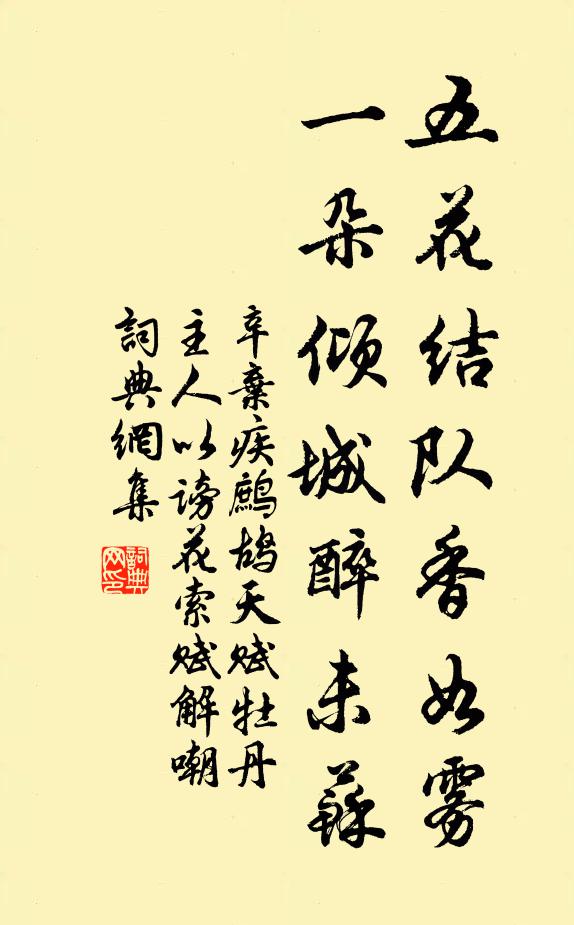 五花结队香如雾
一朵倾城醉未蘇
辛棄疾鷓鴣天赋牡丹
主人以谤花索赋解嘲
詞典網集
詞典
网印